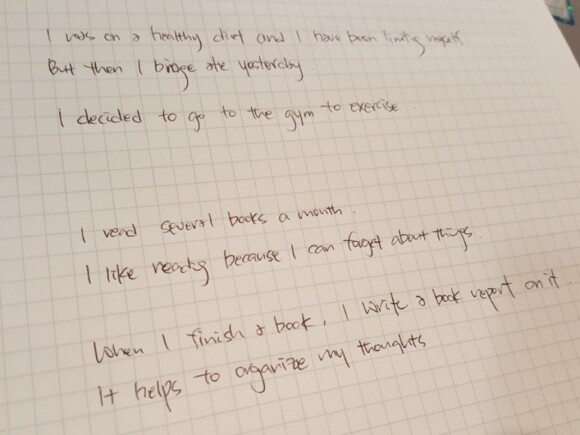 I was on a healthy diet and I have been limiting myself
But then I binge ate yesterday.
I decided to go to the gym to exercise.
I read several books a month.
I like reading because I can forget about things.
When I finish a book, I write a book report on it.
It helps to organize my thoughts